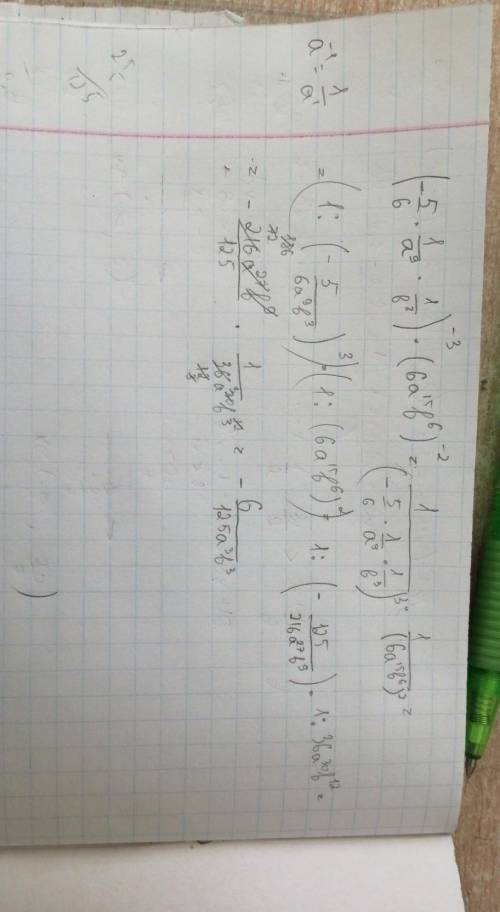 (-5/6 · 1/a⁹ · 1/b³)⁻³ · (6a¹⁵b⁶)⁻² = 1/(-5/6 · 1/a⁹ · 1/b³)³ · 1/(6a¹⁵b⁶)² =
a⁻¹ = 1/a¹
= (1 : (-5/6a⁹b³))³ · (1 : (6a¹⁵b⁶))² = 1 : (-125/216a²⁷b⁹) · 1 : 36a³⁰b¹² =
= -216a²⁷b⁹/125 · 1/36a³⁰b¹² = -6/125a³b³